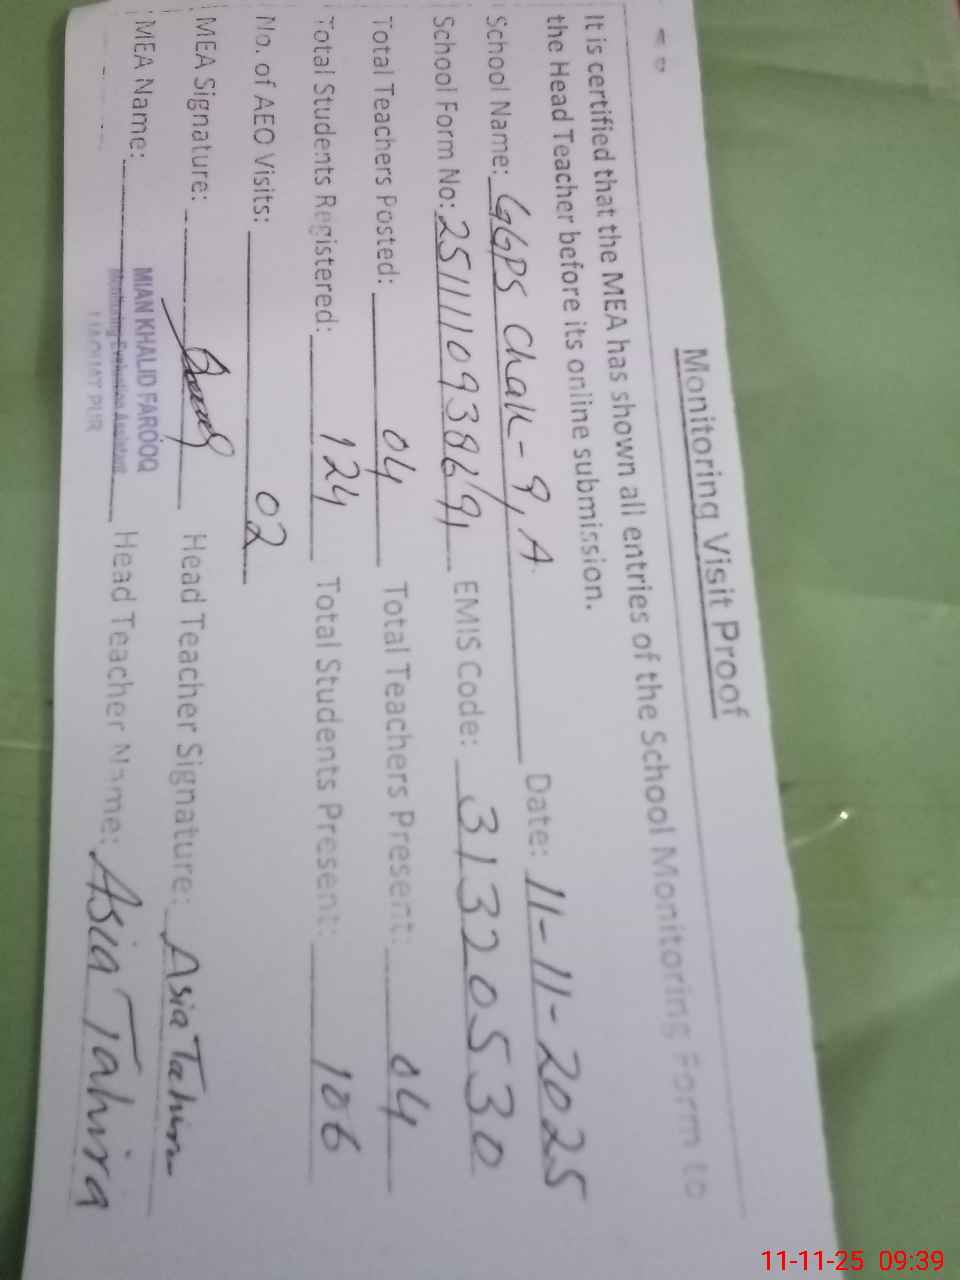 Monitoring Visit Proof
It is certified that the MEA has shown all entries of the School Monitoring Form to
the Head Teacher before its online submission.
School Name: GGPS Chak-9/A Date: 11-11-2025
School Form No: EMIS Code: 31320530
Total Teachers Posted: 04 Total Teachers Present: 04
Total Students Registered: 124 Total Students Present: 106
No. of AEO Visits: 02
MEA Signature: Head Teacher Signature: Asia Tahira
MEA Name: MIAN KHALID FAROOQ Head Teacher Name: Asia Tahira
Monitoring Evaluation Assistant
LIAQUAT PUR
11-11-25 09:39